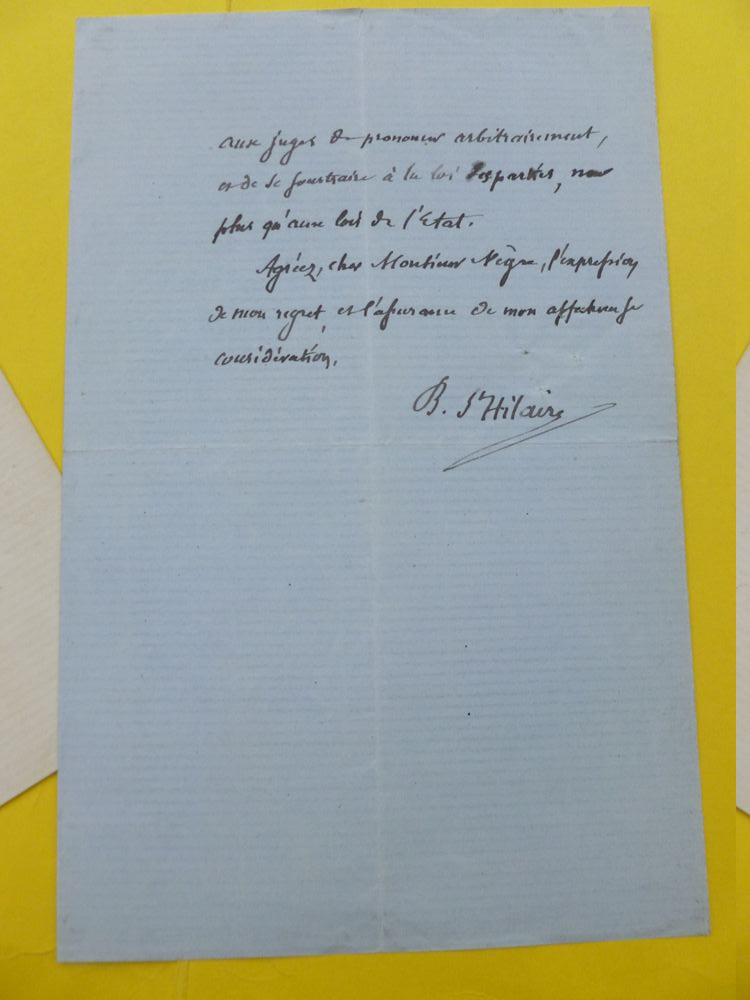 aux juges de prononcer arbitrairement,
et de se soustraire à la loi des parties, non
plus qu'aux lois de l'Etat.
Agréez, cher Monsieur Nègre, l'expression
de mon regret, et l'assurance de mon affectueuse
considération.
B. St Hilaire